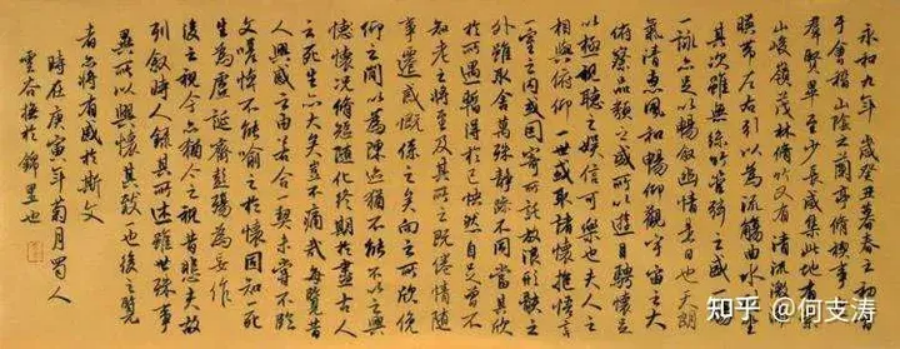 永和九年歲癸丑暮春之初會
于會稽山陰之蘭亭修禊事
羣賢畢至少長咸集此地有崇
山峻嶺茂林修竹又有清流激湍
暎帶左右引以為流觴曲水列坐
其次雖無絲竹管弦之盛一觴
一詠亦足以暢敘幽情是日也天朗
氣清惠風和暢仰觀宇宙之大
俯察品類之盛所以遊目騁懷足
以極視聽之娛信可樂也夫人之
相與俯仰一世或取諸懷抱悟言
一室之內或因寄所託放浪形骸之
外雖取舍萬殊靜躁不同當其欣
於所遇暫得於己怏然自足曾不
知老之將至及其所之既倦情隨
事遷感慨係之矣向之所欣俛
仰之間以為陳迹猶不能不以之興
懷況修短隨化終期於盡古人
云死生亦大矣豈不痛哉每覽昔
人興感之由若合一契未嘗不臨
文嗟悼不能喻之於懷固知一死
生為虛誕齊彭殤為妄作
後之視今亦猶今之視昔悲夫故
列敘時人錄其所述雖世殊事
異所以興懷其致一也後之覽
者亦將有感於斯文
時在庚寅年菊月蜀人
雲谷撫於錦里也
知乎 @何支涛